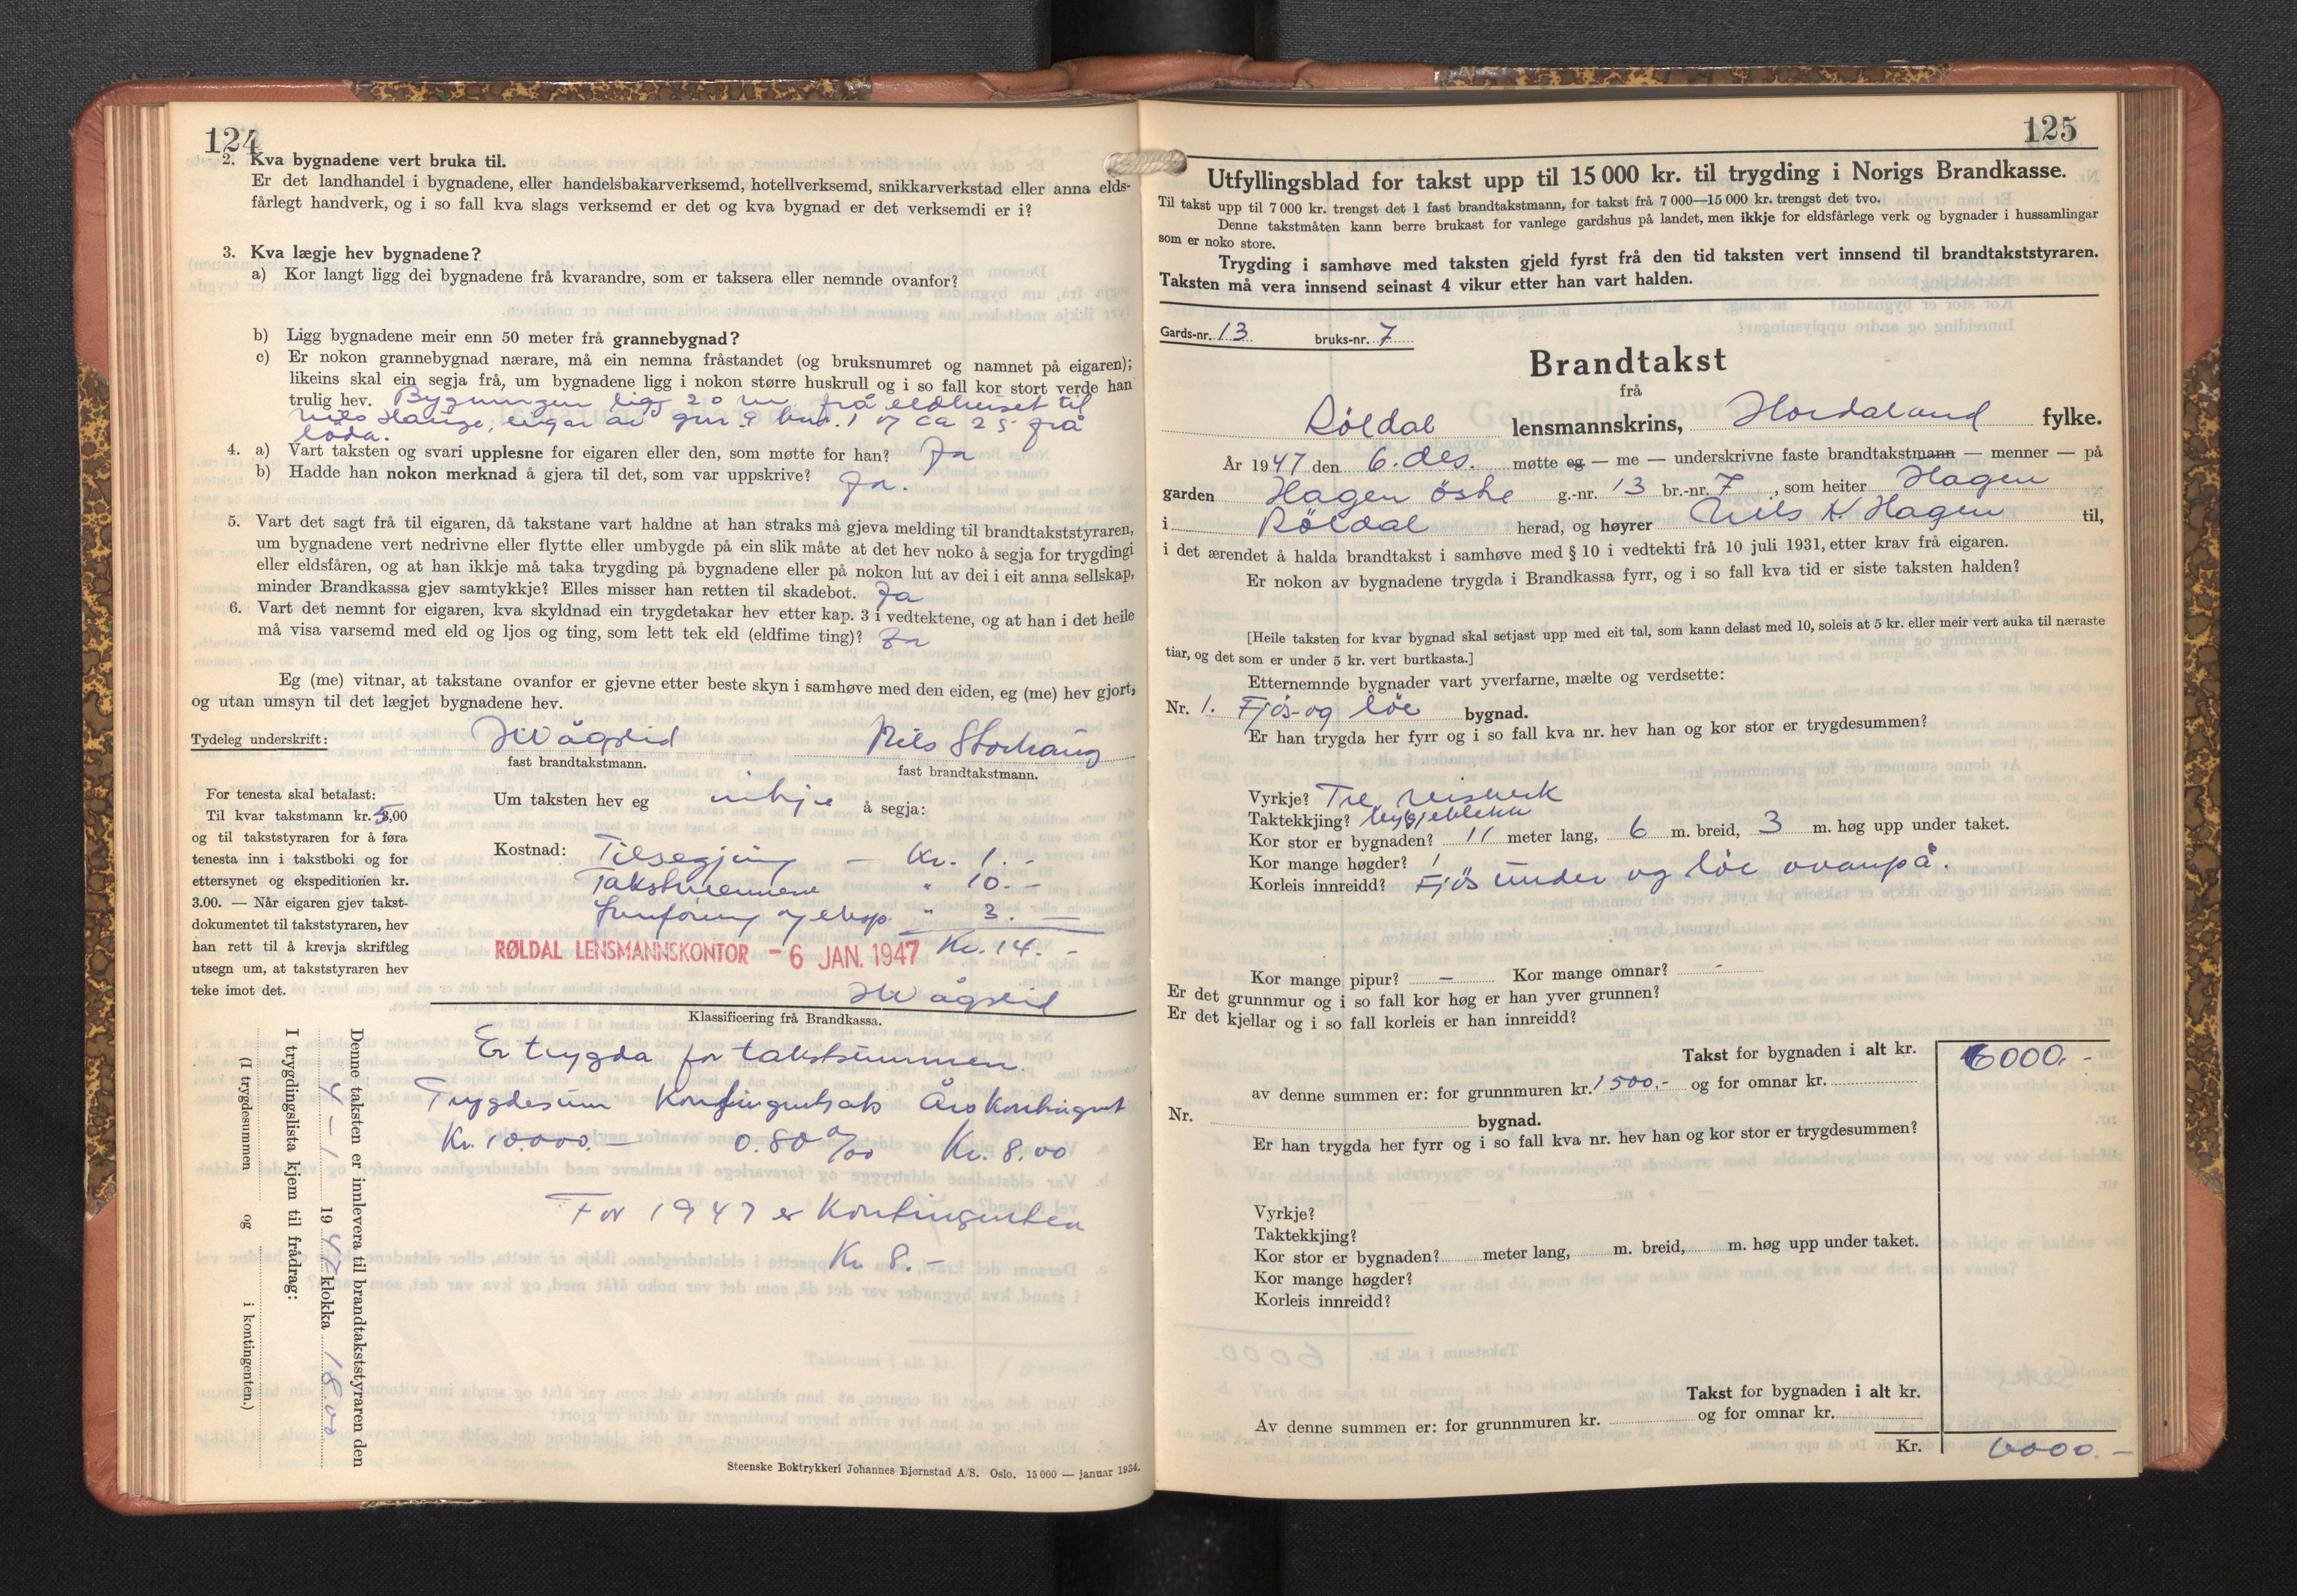 124
2. Kva bygnadene vert bruka til.
Er det landhandel i bygnadene, eller handelsbakarverksemd, hotellverksemd, snikkarverkstad eller anna elds-
fårlegt handverk, og i so fall kva slags verksemd er det og kva bygnad er det verksemdi er i?
3. Kva lægje hev bygnadene?
a) Kor langt ligg dei bygnadene frå kvarandre, som er taksera eller nemnde ovanfor?
b) Ligg bygnadene meir enn 50 meter frå grannebygnad?
c) Er nokon grannebygnad nærare, må ein nemna fråstandet (og bruksnumret og namnet på eigaren);
likeins skal ein segja frå, um bygnadene ligg i nokon større huskrull og i so fall kor stort verde han
trulig hev. Bygningen ligg 20 m. frå eldhuset til
Nils Hauge, eigar av gnr. 9 bnr. 1 og ca 25 frå
löda.
4. a) Vart taksten og svari upplesne for eigaren eller den, som møtte for han? Ja
b) Hadde han nokon merknad å gjera til det, som var uppskrive? Ja.
5. Vart det sagt frå til eigaren, då takstane vart haldne at han straks må gjeva melding til brandtakststyraren,
um bygnadene vert nedrivne eller flytte eller umbygde på ein slik måte at det hev noko å segja for trygdingi
eller eldsfåren, og at han ikkje må taka trygding på bygnadene eller på nokon lut av dei i eit anna sellskap,
minder Brandkassa gjev samtykkje? Elles misser han retten til skadebot. Ja
6. Vart det nemnt for eigaren, kva skyldnad ein trygdetakar hev etter kap. 3 i vedtektene, og at han i det heile
må visa varsemd med eld og ljos og ting, som lett tek eld (eldfime ting)? Ja
Eg (me) vitnar, at takstane ovanfor er gjevne etter beste skyn i samhøve med den eiden, eg (me) hev gjort,
og utan umsyn til det lægjet bygnadene hev.
Tydeleg underskrift: JWågslid Nils Storhaug
fast brandtakstmann. fast brandtakstmann.
For tenesta skal betalast:
Til kvar takstmann kr. 5,00
og til takststyraren for å føra
tenesta inn i takstboki og for
ettersynet og ekspeditionen kr.
3.00. — Når eigaren gjev takst-
dokumentet til takststyraren, hev
han rett til å krevja skriftleg
utsegn um, at takststyraren hev
teke imot det.
Um taksten hev eg inkje å segja:
Kostnad: Tilsegjing — Kr. 1.-
Takstmennene " 10.-
Innföring og eksp. " 3.—
RØLDAL LENSMANNSKONTOR - 6 JAN. 1947 Kr. 14.-
JWågslid
Klassificering frå Brandkassa.
Er trygda for takstsummen.
Trygdesum Kontingentsats Årskontingent
Kr. 10.000.— 0.80 o/oo Kr. 8.00
For 1947 er Kontingenten
Kr 8.-
Denne taksten er innlevera til brandtakststyraren den
4 - 1 1947 klokka 18.00
I trygdingslista kjem til frådrag:
(I trygdesummen og i kontingenten.)
Steenske Boktrykkeri Johannes Bjørnstad A/S. Oslo. 15 000 — januar 1934.
125
Utfyllingsblad for takst upp til 15 000 kr. til trygding i Norigs Brandkasse.
Til takst upp til 7 000 kr. trengst det 1 fast brandtakstmann, for takst frå 7 000—15 000 kr. trengst det tvo.
Denne takstmåten kann berre brukast for vanlege gardshus på landet, men ikkje for eldsfårlege verk og bygnader i hussamlingar
som er noko store.
Trygding i samhøve med taksten gjeld fyrst frå den tid taksten vert innsend til brandtakststyraren.
Taksten må vera innsend seinast 4 vikur etter han vart halden.
Gards-nr. 13 bruks-nr. 7
Brandtakst
frå
Röldal lensmannskrins, Hordaland fylke.
År 1947 den 6. des. møtte eg — me — underskrivne faste brandtakstmann — menner — på
garden Hagen östre g.-nr. 13 br.-nr. 7, som heiter Hagen
i Röldal herad, og høyrer Nils K. Hagen til,
i det ærendet å halda brandtakst i samhøve med § 10 i vedtekti frå 10 juli 1931, etter krav frå eigaren.
Er nokon av bygnadene trygda i Brandkassa fyrr, og i so fall kva tid er siste taksten halden?
[Heile taksten for kvar bygnad skal setjast upp med eit tal, som kann delast med 10, soleis at 5 kr. eller meir vert auka til næraste
tiar, og det som er under 5 kr. vert burtkasta.]
Etternemnde bygnader vart yverfarne, mælte og verdsette:
Nr. 1. Fjös-og löe bygnad.
Er han trygda her fyrr og i so fall kva nr. hev han og kor stor er trygdesummen?
Vyrkje? Tre, reisverk
Taktekkjing? bygjeblekk
Kor stor er bygnaden? 11 meter lang, 6 m. breid, 3 m. høg upp under taket.
Kor mange høgder? 1
Korleis innreidd? Fjös under og löe ovanpå.
Kor mange pipur? - Kor mange omnar? -
Er det grunnmur og i so fall kor høg er han yver grunnen?
Er det kjellar og i so fall korleis er han innreidd?
Takst for bygnaden i alt kr. 6000.-
av denne summen er: for grunnmuren kr. 1500.- og for omnar kr.
Nr. bygnad.
Er han trygda her fyrr og i so fall kva nr. hev han og kor stor er trygdesummen?
Vyrkje?
Taktekkjing?
Kor stor er bygnaden? meter lang, m. breid, m. høg upp under taket.
Kor mange høgder?
Korleis innreidd?
Takst for bygnaden i alt kr.
Av denne summen er: for grunnmuren kr. og for omnar kr.
Kr. 6000.-